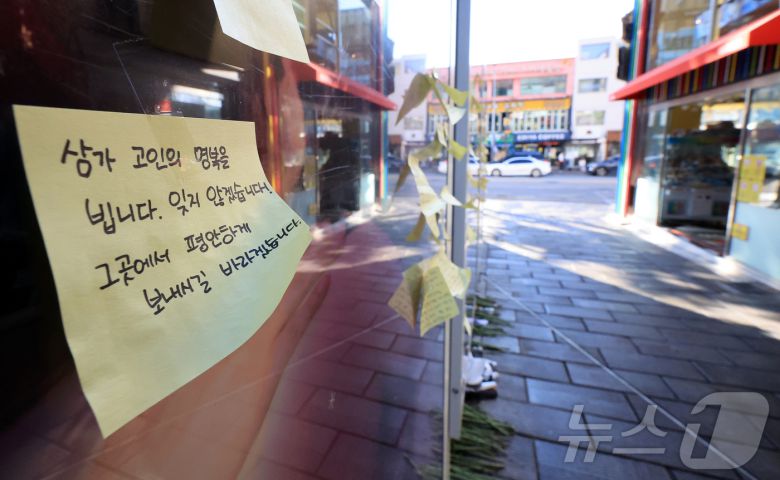 삼가 고인의 명복을
빕니다. 잊지 않겠습니다!
그곳에서 평안하게
보내시길 바라겠습니다.
뉴스1